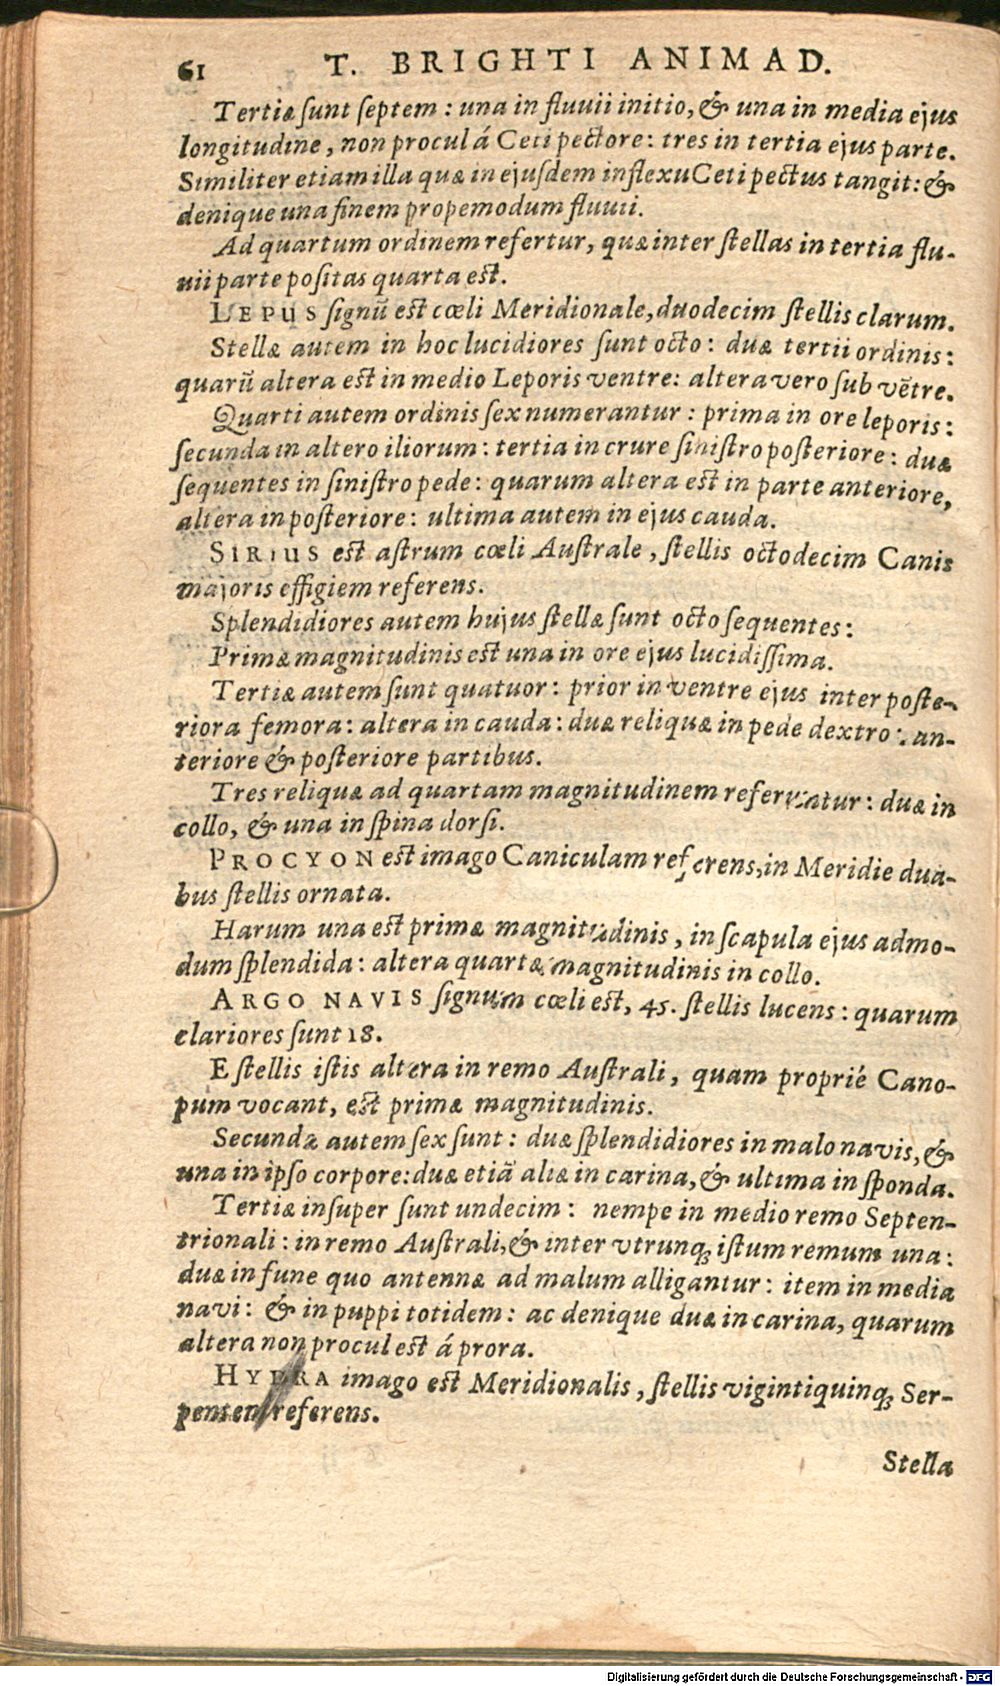 61 T. BRIGHTI ANIMAD.
Tertiæ sunt septem: una in fluvii initio, & una in media ejus
longitudine, non procul á Ceti pectore: tres in tertia ejus parte.
Similiter etiam illa quæ in ejusdem inflexu Ceti pectus tangit: &
denique una finem propemodum fluvii.
Ad quartum ordinem refertur, quæ inter stellas in tertia flu-
vii parte positas quarta est.
LEPUS signũ est cœli Meridionale, duodecim stellis clarum.
Stellæ autem in hoc lucidiores sunt octo: duæ tertii ordinis:
quarũ altera est in medio Leporis ventre: altera vero sub vẽtre.
Quarti autem ordinis sex numerantur: prima in ore leporis:
secunda in altero iliorum: tertia in crure sinistro posteriore: duæ
sequentes in sinistro pede: quarum altera est in parte anteriore,
altera in posteriore: ultima autem in ejus cauda.
SIRIUS est astrum cœli Australe, stellis octodecim Canis
majoris effigiem referens.
Splendidiores autem hujus stellæ sunt octo sequentes:
Primæ magnitudinis est una in ore ejus lucidissima.
Tertiæ autem sunt quatuor: prior in ventre ejus inter poste-
riora femora: altera in cauda: duæ reliquæ in pede dextro: an-
teriore & posteriore partibus.
Tres reliquæ ad quartam magnitudinem referuntur: duæ in
collo, & una in spina dorsi.
PROCYON est imago Caniculam referens, in Meridie dua-
bus stellis ornata.
Harum una est primæ magnitudinis, in scapula ejus admo-
dum splendida: altera quartæ magnitudinis in collo.
ARGO NAVIS signum cœli est, 45. stellis lucens: quarum
clariores sunt 18.
E stellis istis altera in remo Australi, quam proprié Cano-
pum vocant, est primæ magnitudinis.
Secundæ autem sex sunt: duæ splendidiores in malo navis, &
una in ipso corpore: duæ etiã aliæ in carina, & ultima in sponda.
Tertiæ insuper sunt undecim: nempe in medio remo Septen-
trionali: in remo Australi, & inter utrunq; istum remum una:
duæ in fune quo antennæ ad malum alligantur: item in media
navi: & in puppi totidem: ac denique duæ in carina, quarum
altera non procul est á prora.
HYDRA imago est Meridionalis, stellis vigintiquinq; Ser-
pentem referens.
Stella
Digitalisierung gefördert durch die Deutsche Forschungsgemeinschaft - DFG